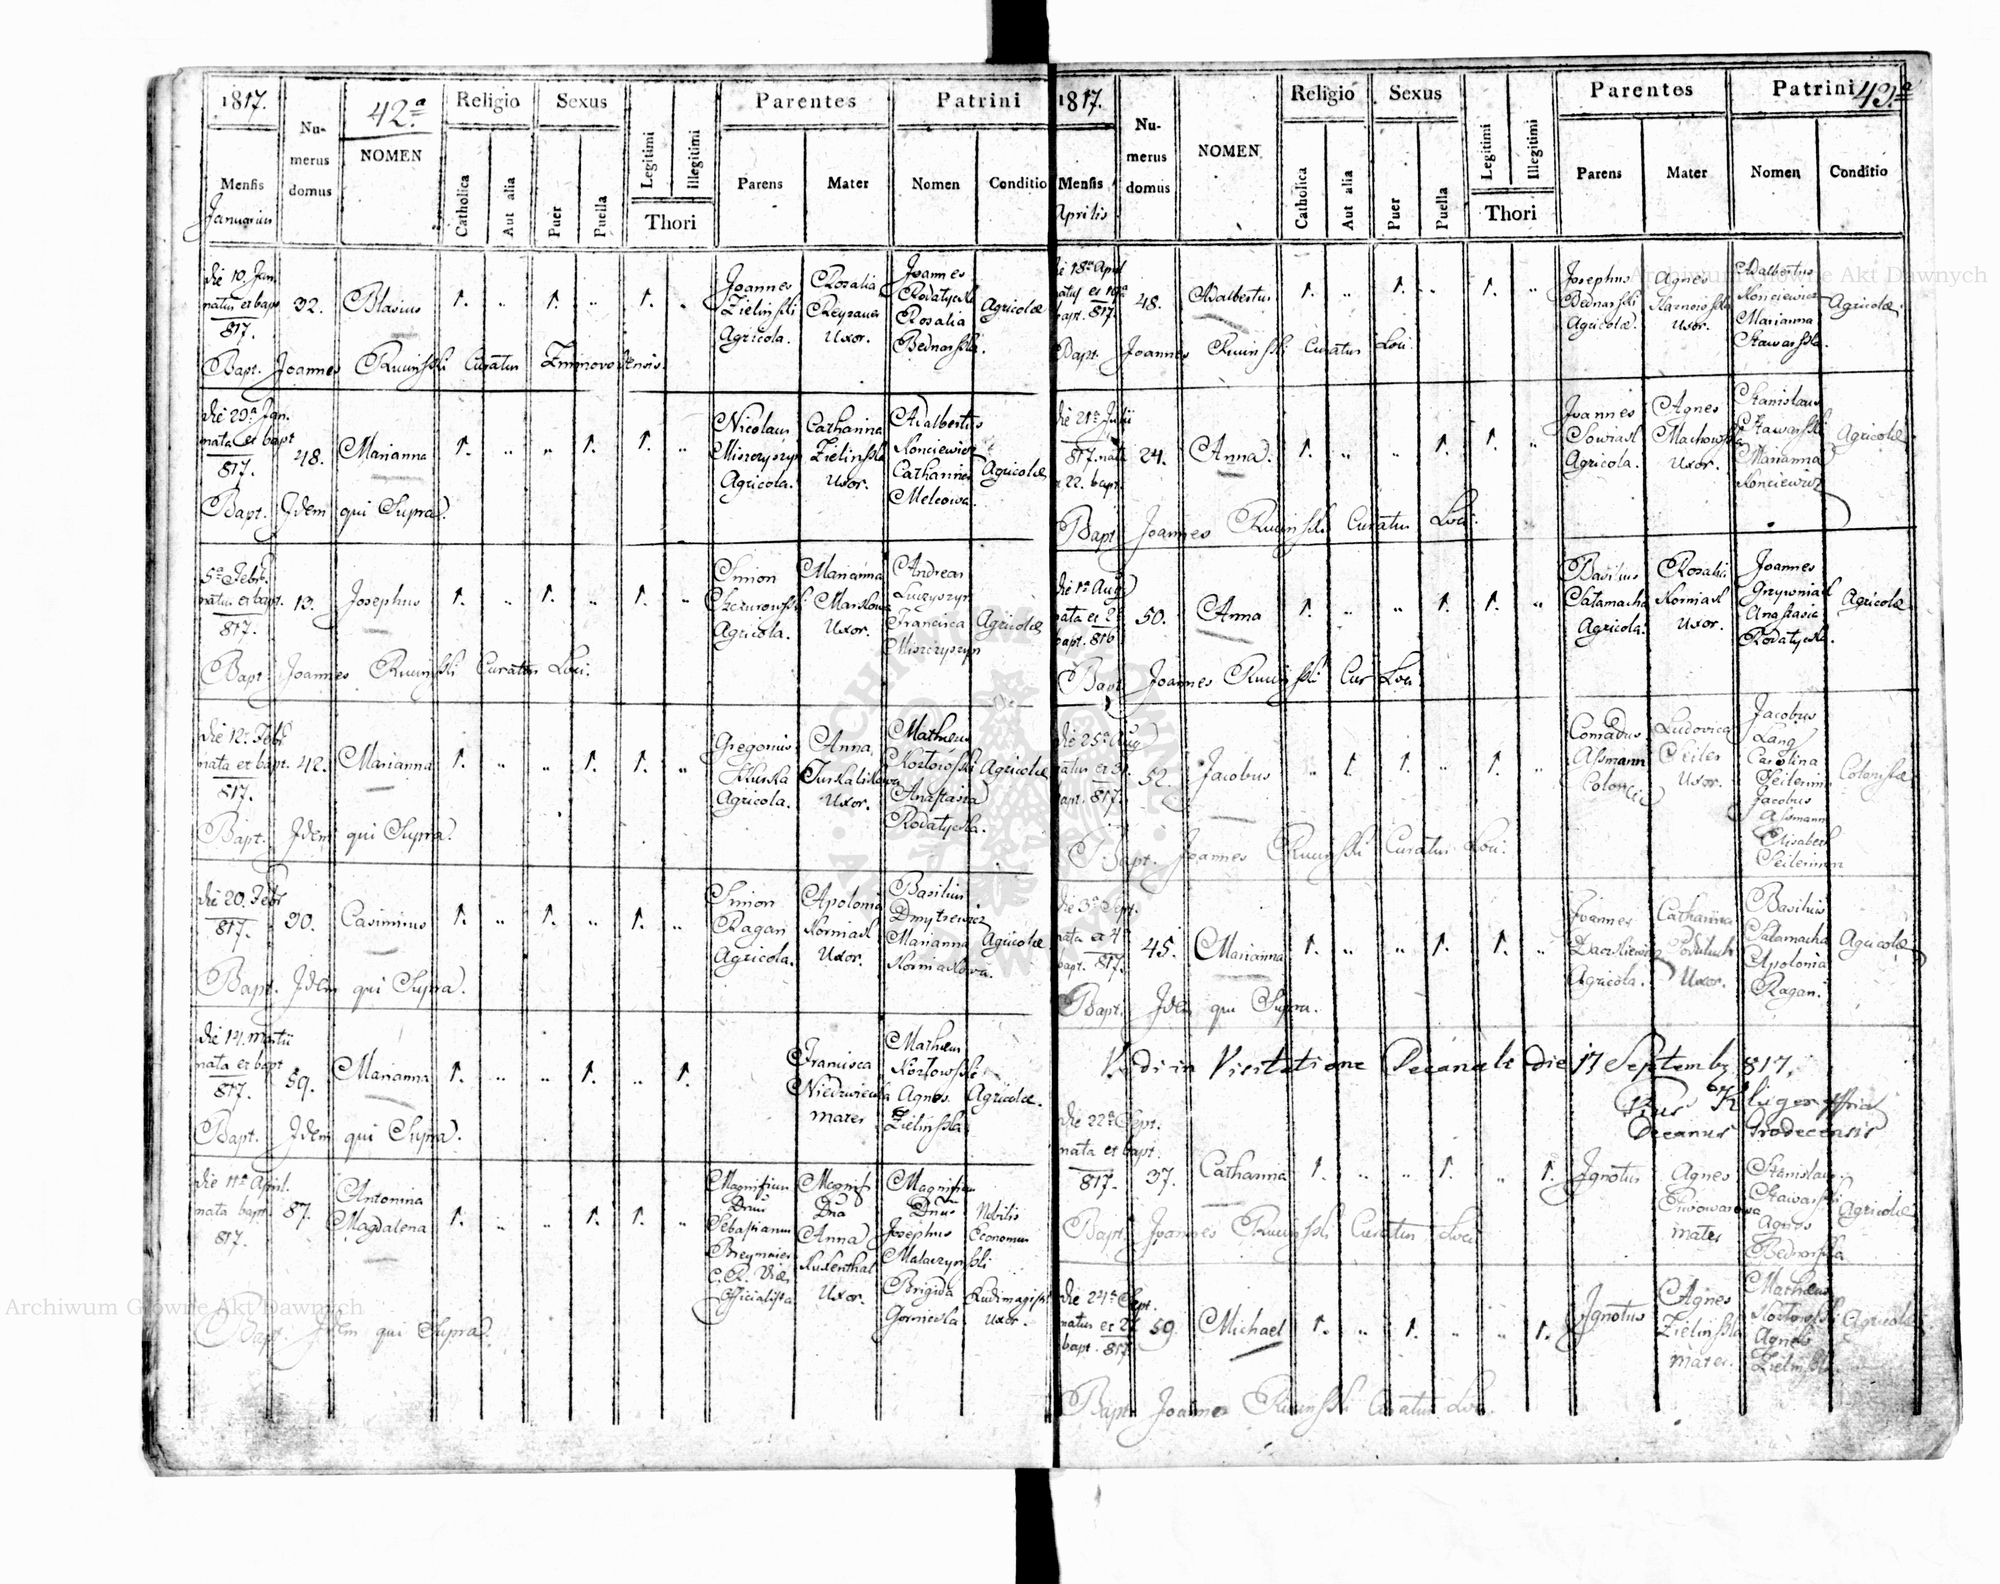 1817.
42.ª
Numerus domus
NOMEN
Religio
Sexus
Legitimi
Illegitimi
Thori
Parentes
Patrini
Mensis
Catholica
Aut alia
Puer
Puella
Parens
Mater
Nomen
Conditio
Januarius
die 10. Jan. 32. Blasius 1. .. 1. .. 1. .. Joannes Rosalia Joannes
natus et bapt. Zielinski Rodatycki Agricolae
817. Agricola. Uxor. Rosalia
Bednarska.
Bapt. Joannes Rucinski Curatus
die 29ª Jan. 48. Marianna 1. .. .. 1. 1. .. Nicolaus Catharina Adalbertus
nata et bapt Miszczyszyn Zielinska Konciewicz
817. Agricola. Uxor. Catharina Agricolae
Melcowa.
Bapt. Idem qui Supra.
5ª Febr. 13. Josephus 1. .. 1. .. 1. .. Simon Marianna Andreas
natus et bapt. Szczurowski Luczyszyn
817. Agricola. Uxor. Francisca Agricolae
Miszczyszyn
Bapt Joannes Rucinski Curatus Loci.
die 12ª Febr 42. Marianna 1. .. .. 1. 1. .. Gregorius Anna Matheus
nata et bapt. Kozłowski Agricolae
817. Agricola. Uxor. Anastasia
Rodatycka.
Bapt. Idem qui Supra.
die 20. Febr 30. Casimirus 1. .. 1. .. 1. .. Simon Apolonia Basilius
817. Ragan Korniak Dmytrewicz
Agricola. Uxor. Marianna Agricolae
Korniakowa.
Bapt. Idem qui Supra.
die 14. martii 59. Marianna 1. .. .. 1. .. 1. Francisca Matheus
nata et bapt Kozłowski
817. mater Agnes Agricolae.
Zielinska
Bapt. Idem qui Supra.
die 11ª April. 87. Antonina 1. .. .. 1. 1. .. Magnificus Magnif Magnificus
nata bapt. Magdalena Dnus Dna Dnus Nobilis
817. Sebastianus Anna Josephus Economus
Breymaier
Uxor. Brigida Ludimagistri
Officialista Gornicka uxor.
Bapt. Idem qui Supra.
1817.
43.ª
Numerus domus
NOMEN
Religio
Sexus
Legitimi
Illegitimi
Thori
Parentes
Patrini
Mensis
Catholica
Aut alia
Puer
Puella
Parens
Mater
Nomen
Conditio
Aprilis
die 18ª April 48. Adalbertus 1. .. 1. .. 1. .. Josephus Agnes Adalbertus
natus et 19ª Bednarski Konciewicz Agricolae.
bapt. 817. Agricola. Uxor. Marianna
Stawarska.
Bapt. Joannes Rucinski Curatus Loci.
die 21ª Julii 24. Anna. 1. .. .. 1. 1. .. Joannes Agnes Stanislaus
817. nata Sowiak Machowska Stawarski Agricolae
22. bapt. Agricola. Uxor. Marianna
Konciewicz
Bapt Joannes Rucinski Curatus Loci.
die 1ª Aug 50. Anna 1. .. .. 1. 1. .. Basilius Rosalia Joannes
nata et 2ª Salamacha Korniak Agricolae
bapt. 816 Agricola. Uxor. Anastasia
Rodatycka.
Bapt Joannes Rucinski Cur Loci
die 25ª Aug 52. Jacobus .. 1. 1. .. 1. .. Conradus Ludovica Jacobus
natus et 31 Assmann Lang
bapt. 817. Uxor. Carolina Colonistae
Jacobus
Assmann
Elisabeth
Bapt. Joannes Rucinski Curatus Loci.
die 3ª Sept. 45. Marianna 1. .. .. 1. 1. .. Joannes Catharina Basilius
nata et 4ª Salamacha Agricolae
bapt. 817. Agricola. Uxor. Apolonia
Ragan.
Bapt. Idem qui Supra.
Vidi in Visitatione Decanali die 17 Septembr. 817.
Pius Klüger
Decanus Grodecensis
die 22ª Sept. 37. Catharina 1. .. .. 1. .. 1. Ignotus Agnes Stanislaus
nata et bapt. Stawarski Agricolae
817. mater Agnes
Bednarska
Bapt. Joannes Rucinski Curatus Loci
die 24ª Sept. 59. Michael 1. .. 1. .. .. 1. Ignotus Agnes Matheus
natus et Zielinska Kozłowski Agricolae
bapt. 817 mater. Agnes
Zielinska
Bapt Joannes Rucinski Curatus Loci.
Archiwum Główne Akt Dawnych
Archiwum Główne Akt Dawnych